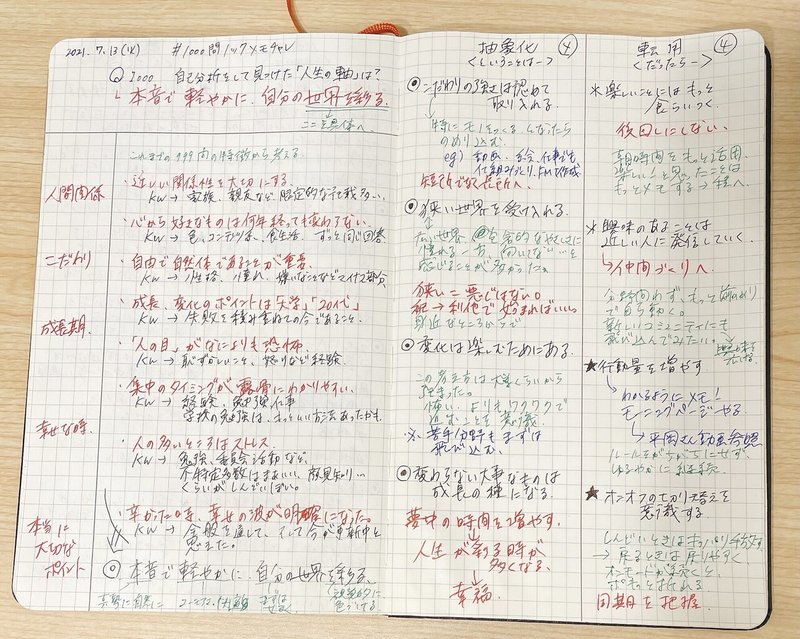 2021.7.13(火) #1000問ノックメモチャレ
Q1000 自己分析をして見つけた「人生の軸」は?
本音で軽やかに、自分の世界を彩る。
ここを具体へ。
これまでの999問の特徴から考える
人間関係
・近しい関係性を大切にする。
KW → 家族、親友など、限定的な
・心から好きなものは何年経っても変わらない。
KW → 色、コンテンツ、食生活、ずっと同じ回答
こだわり
・自由で自然体であることが
KW → 性格、憧れ、嫌いなことなどマイナス部分
成長期
・成長、変化のポイントは大学と「20代」
KW → 失敗を積み重ねての今であること。
・「人の目」がなによりも恐怖
KW → 恥ずかしいこと、怒りなど経験
・集中のタイミングが露骨にわかりやすい。
KW → 経験、勉強、仕事
学校の勉強は、もっといい方法あったかも
幸せな時
・人の多いところはストレス
KW → 勉強、委員会活動など、
不特定多数はまあいい、顔見知り…
くらいがしんどい
・辛かった時、幸せの波が明確になった。
KW → 全般を通して、そして今が更新中と
思えた。
本当に
大切な
ポイント
◎ 本音で軽やかに、自分の世界を彩る。
素直に自然に
抽象化
<ということは→>
◎こだわりの強さは認めて
取り入れる。
特にモノをつくるとなったら
のめり込む。
eg) 動画、絵、仕事でも
仕組みづくり、KM作成
短所でなく長所へ。
◎狭い世界を受け入れる。
広い世界
憧れる一方、向いてない…と
感じることが多かった。
狭い=悪ではない。
利他で始まればいい。
身近なところからで
◎変化は楽しむためにある。
この考え方は大学くらいから
強まった。
怖い、よりもワクワクで
進むことを意識
※苦手分野もまずは
飛び込む。
◎変わらない大事なものは
成長の種になる。
夢中の時間を増やす。
↓
人生が彩る時が
多くなる。
↓
幸福。
転用
<だったら→>
※楽しいことにはもっと
食らいつく。
後回しにしない。
朝時間をもっと活用。
楽しいと思ったことは
もっとメモする→種へ。
※興味のあることは
近しい人に発信していく。
↳仲間づくりへ
公時間わず、もっと前のめり
で自ら動く。
新しいコミュニティにも
飛び込んでみたい。
★行動量を増やす
↳わかるようにメモ!
モーニングページやる。
↳平岡さん動画参照
ルールをがちがちにせず、
ゆるやかに継続。
★オンオフの切り替えを
意識する
しんどいときはきっぱり手放す
→戻るときは戻りやすく
オンモードが続くと、
ポキっと折れる
周期を把握。